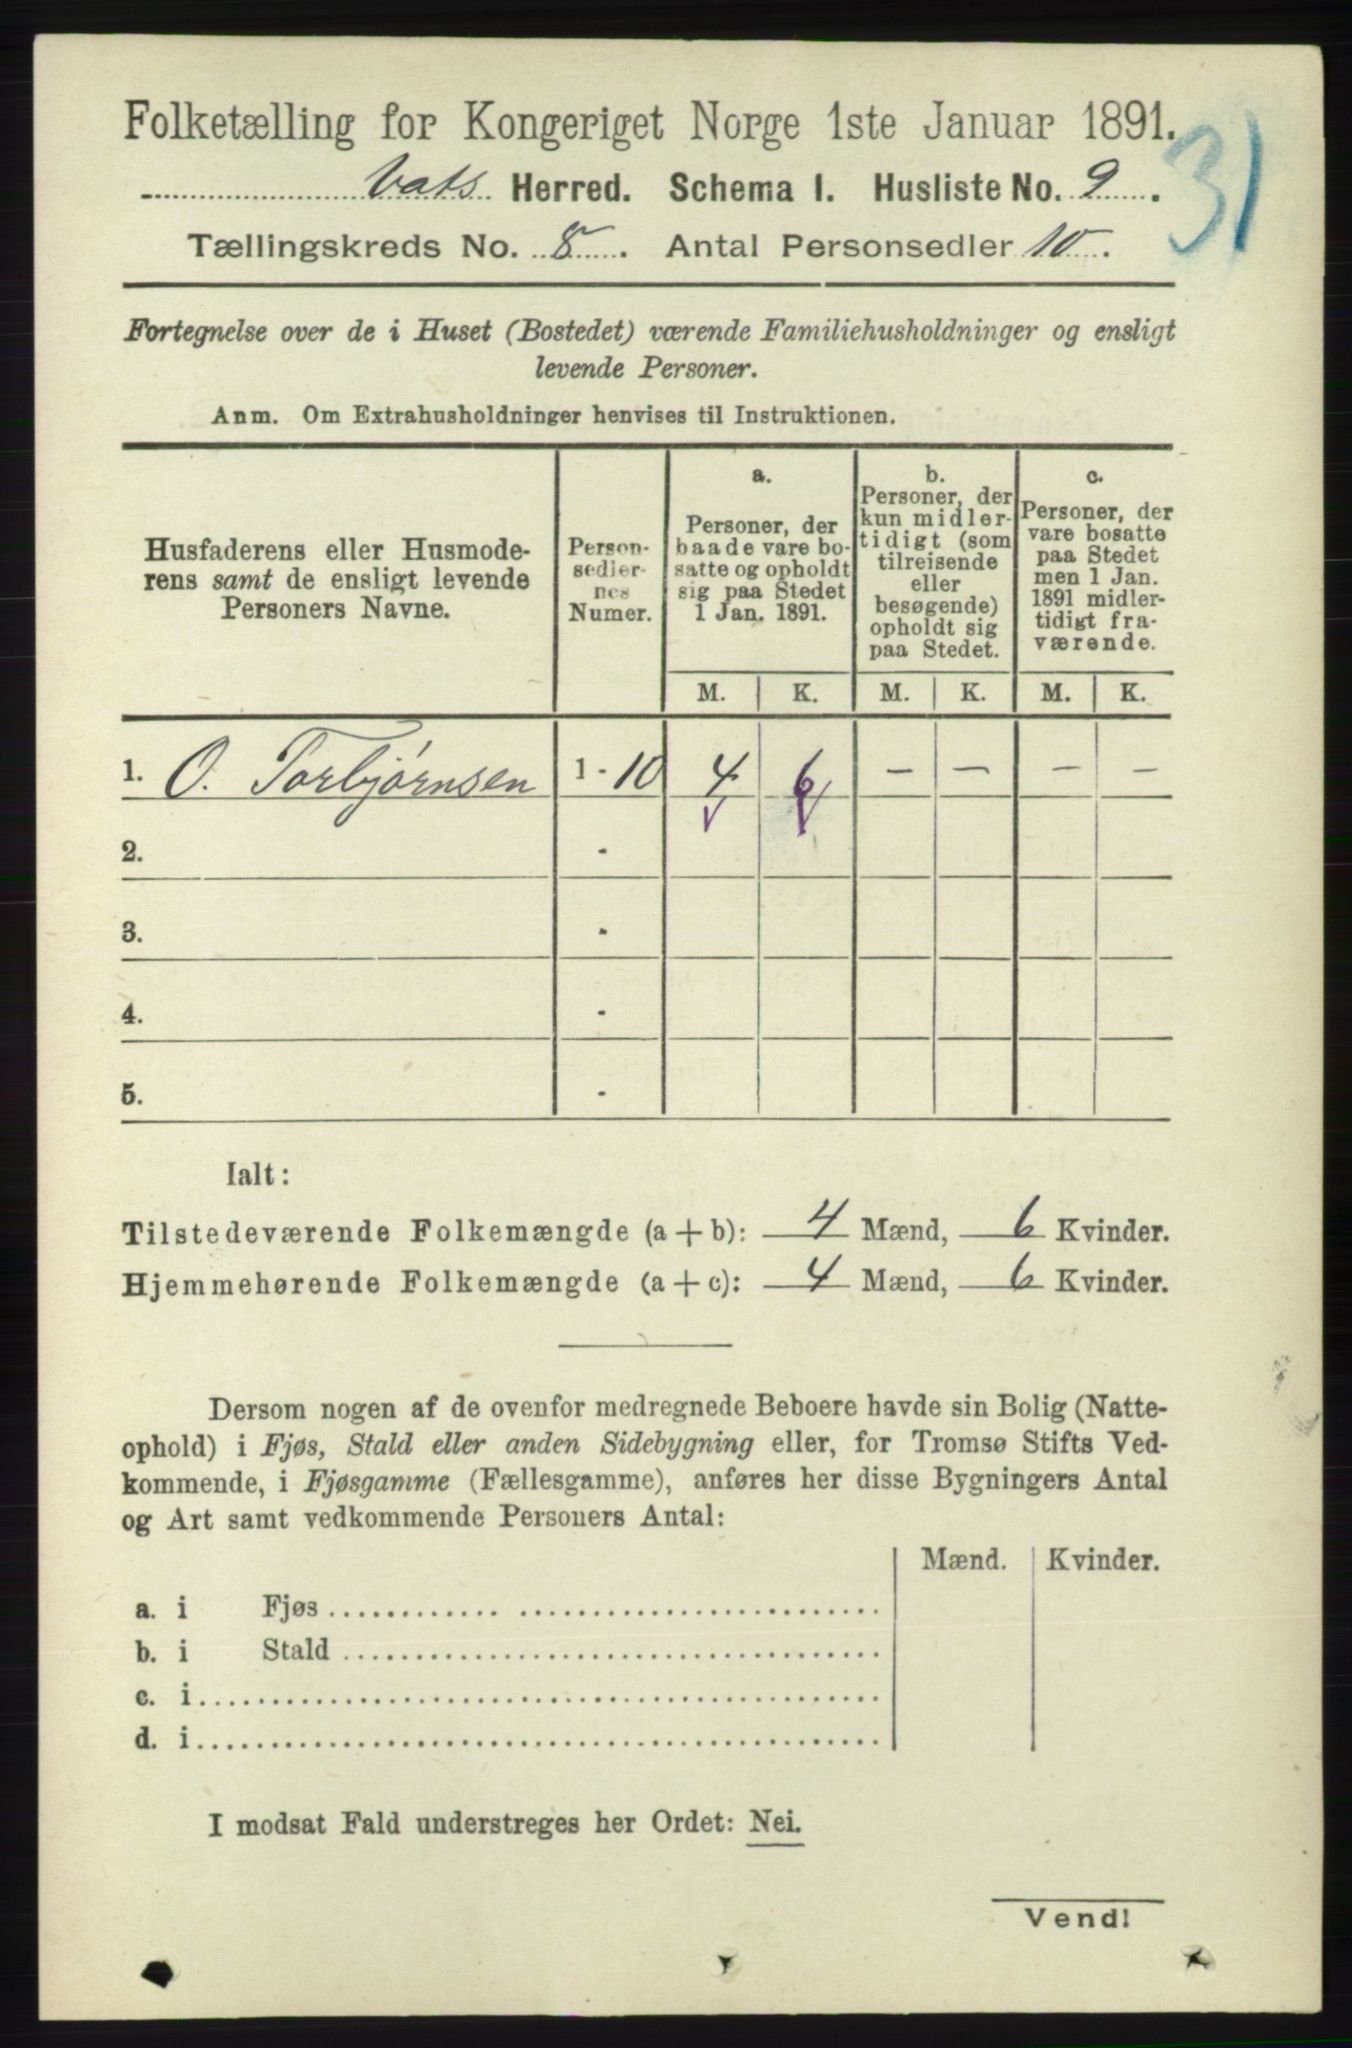 Folketælling for Kongeriget Norge 1ste Januar 1891.
31
Vats Herred. Schema I. Husliste No. 9.
Tællingskreds No. 8. Antal Personsedler 10.
Fortegnelse over de i Huset (Bostedet) værende Familiehusholdninger og ensligt
levende Personer.
Anm. Om Extrahusholdninger henvises til Instruktionen.
Husfaderens eller Husmode-
rens samt de ensligt levende
Personers Navne.
Person-
sedler-
nes
Numer.
a.
Personer, der
baade vare bo-
satte og opholdt
sig paa Stedet
1 Jan. 1891.
b.
Personer, der
kun midler-
tidigt (som
tilreisende
eller
besøgende)
opholdt sig
paa Stedet.
c.
Personer, der
vare bosatte
paa Stedet
men 1 Jan.
1891 midler-
tidigt fra-
værende.
M. K. M. K. M. K.
1. O. Torbjørnsen 1 - 10 4 6 — — — —
2. -
3. -
4. -
5. -
Ialt:
Tilstedeværende Folkemængde (a + b): 4 Mænd, 6 Kvinder.
Hjemmehørende Folkemængde (a + c): 4 Mænd, 6 Kvinder.
Dersom nogen af de ovenfor medregnede Beboere havde sin Bolig (Natte-
ophold) i Fjøs, Stald eller anden Sidebygning eller, for Tromsø Stifts Ved-
kommende, i Fjøsgamme (Fællesgamme), anføres her disse Bygningers Antal
og Art samt vedkommende Personers Antal:
Mænd. Kvinder.
a. i Fjøs
b. i Stald
c. i
d. i
I modsat Fald understreges her Ordet: Nei.
Vend!